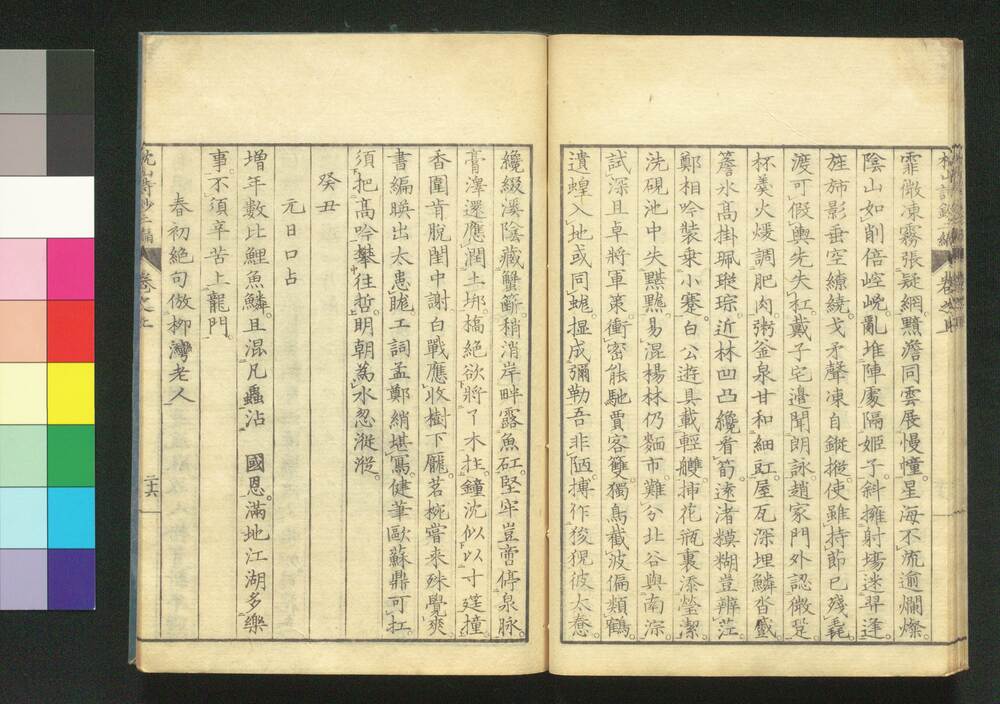 霏微凍霧張疑網。黯澹同雲展慢幢。星海不流逾爛燦。
陰山如削倍崆㟅。亂堆陣處隔姬子。斜擁射場迷羿逢。
旌斾影垂空繚繞。戈矛聲凍自鏦摐。使雖持節已殘毳。
渡可假輿先失杠。戴子宅邊聞朗詠。趙家門外認微跫。
杯羹火煖調肥肉。粥釜泉甘和細豇。屋瓦深埋鱗沓盛
簷氷高掛珮瑽琮。近林凹凸纔看笻。遠渚糢糊豈辨茳
鄭相吟裝乗小蹇。白公遊具載輕艭。挿花瓶裏添瑩潔
洗硯池中失黮黮。易混楊林仍麵市。難分北谷與南淙
試深且卓將軍棗。衝密能馳賈客雙。獨鳥截波偏類鶴
遺蝗入地或同螝。捏成彌勒吾非陋。搏作狻猊彼太惷。
纔綴溪陰藏蟹籪。稍消岸畔露魚矼。堅牢豈啻停泉脉。
膏澤還應潤土垹。槁絶欲將了木拄。鐘沈似以寸莛撞。
香圍肯脫閨中謝。白戰應收樹下龎。茗椀嘗来殊覺爽
書編暎出太悤䏆。工詞孟鄭綃堪寫。健筆歐蘇鼎可扛。
須把髙吟攀往哲。明朝為水忽漎漎。
癸丑
元日口占
增年數比鯉魚鱗。且混凡蟲沾 國恩。滿地江湖多樂
事。不須辛苦上龍門。
春初絶句倣柳灣老人
二十六